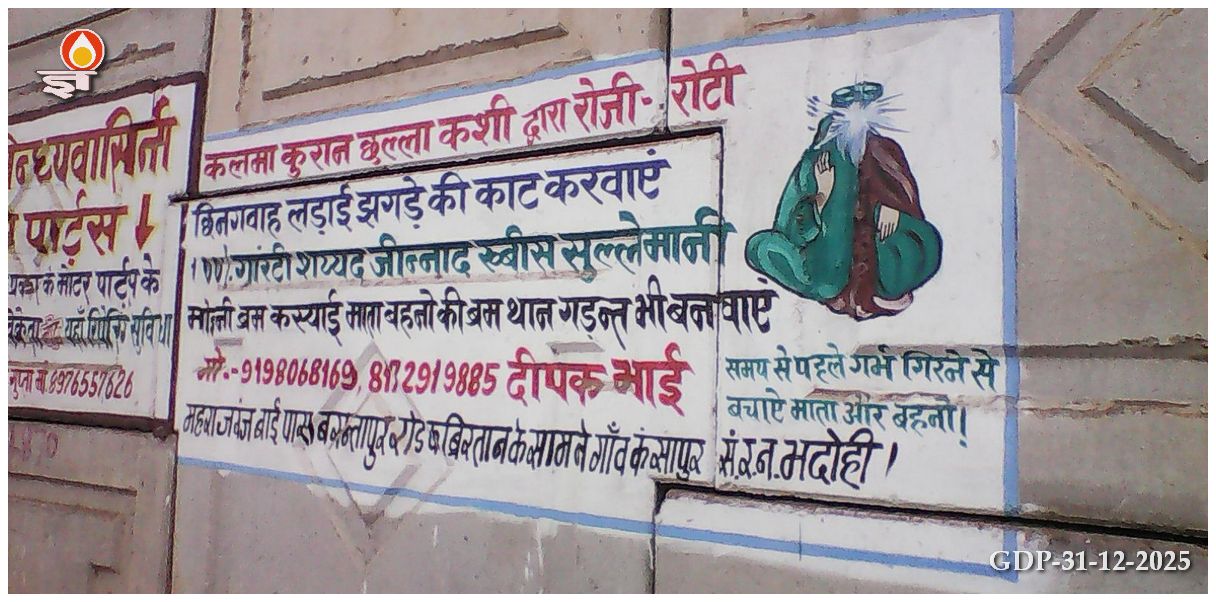 ज्ञ
न्ध्यवासिनी
पार्ट्स ↓
के मोटर पार्टप के
यहाँ रिपेरिंग सुविधा
गुप्ता 8976557626
कलमा कुरान छुल्ला कशी द्वारा रोजी- रोटी
छिनगवाह लड़ाई झगड़े की काट करवाएं
100%. गारंटी शय्यद जीन्नाद ख्बीस सुल्लेमानी
ब्रम कस्याई माता बहनो की ब्रम थान गड़न्त भी बनवाएं
मो.-9198068169, 8172919885 दीपक भाई
महराजगंज बाई पास बसन्तापुर रोड कब्रिस्तान के सामने गाँव कंसापुर सं.र.न. भदोही ।
समय से पहले गर्भ गिरने से
बचाऐ माता और बहनो!
GDP-31-12-2025